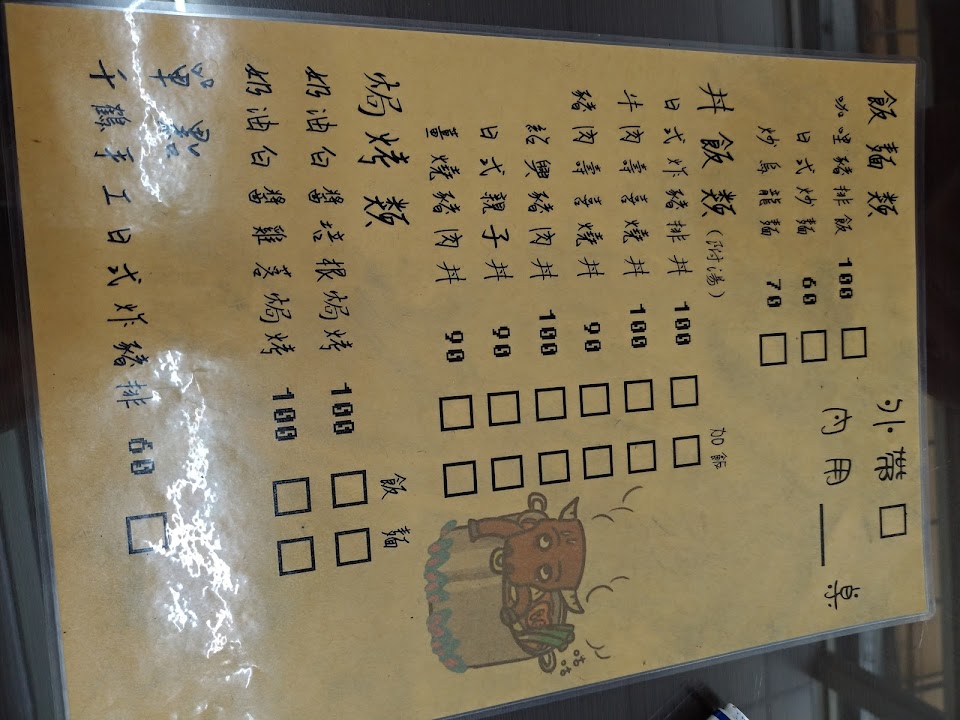 外帶 □
內用 ＿ 桌
飯麵類
咖哩豬排飯 100 □
日式炒麵 60 □
炒烏龍麵 70 □
丼飯類(附湯)
加飯
日式炸豬排丼 100 □ □
牛肉壽喜燒丼 100 □ □
豬肉壽喜燒丼 90 □ □
紹興豬肉丼 100 □ □
日式親子丼 90 □ □
薑燒豬肉丼 90 □ □
焗烤類
飯 麵
奶油白醬培根焗烤 100 □ □
奶油白醬雞蓉焗烤 100 □ □
單點
千鶴手工日式炸豬排 60 □